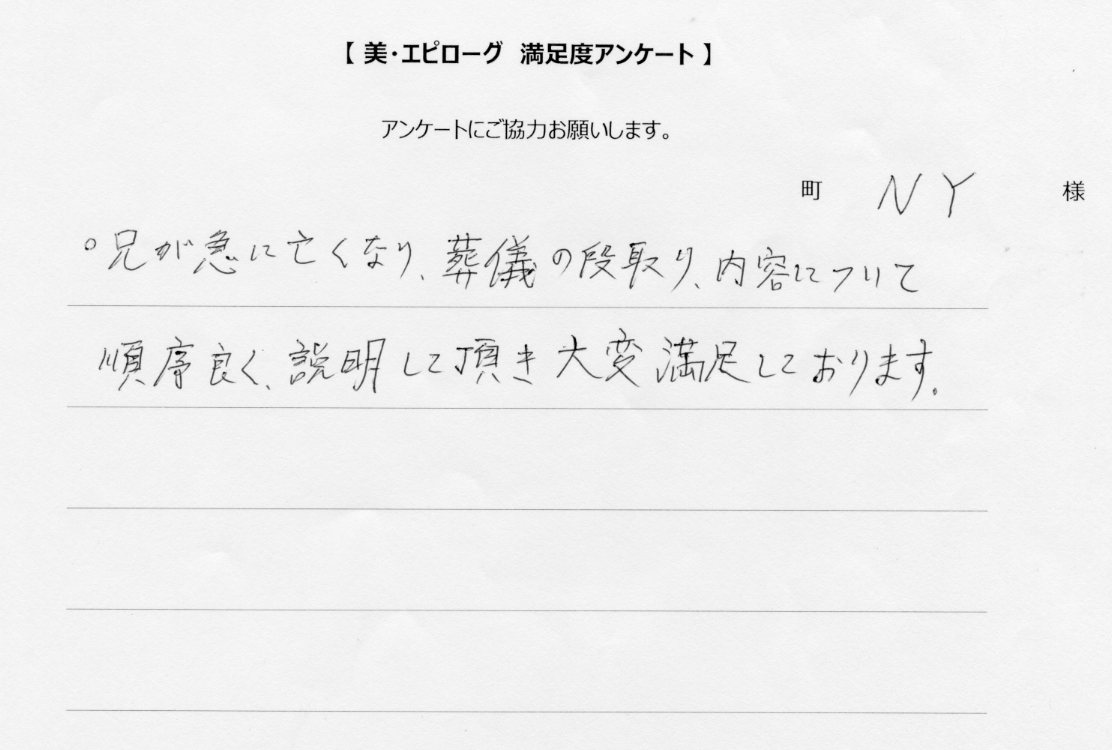 【 美・エピローグ 満足度アンケート 】
アンケートにご協力お願いします。
町 NY 様
○兄が急に亡くなり、葬儀の段取り、内容について
順序良く、説明して頂き大変満足しております。